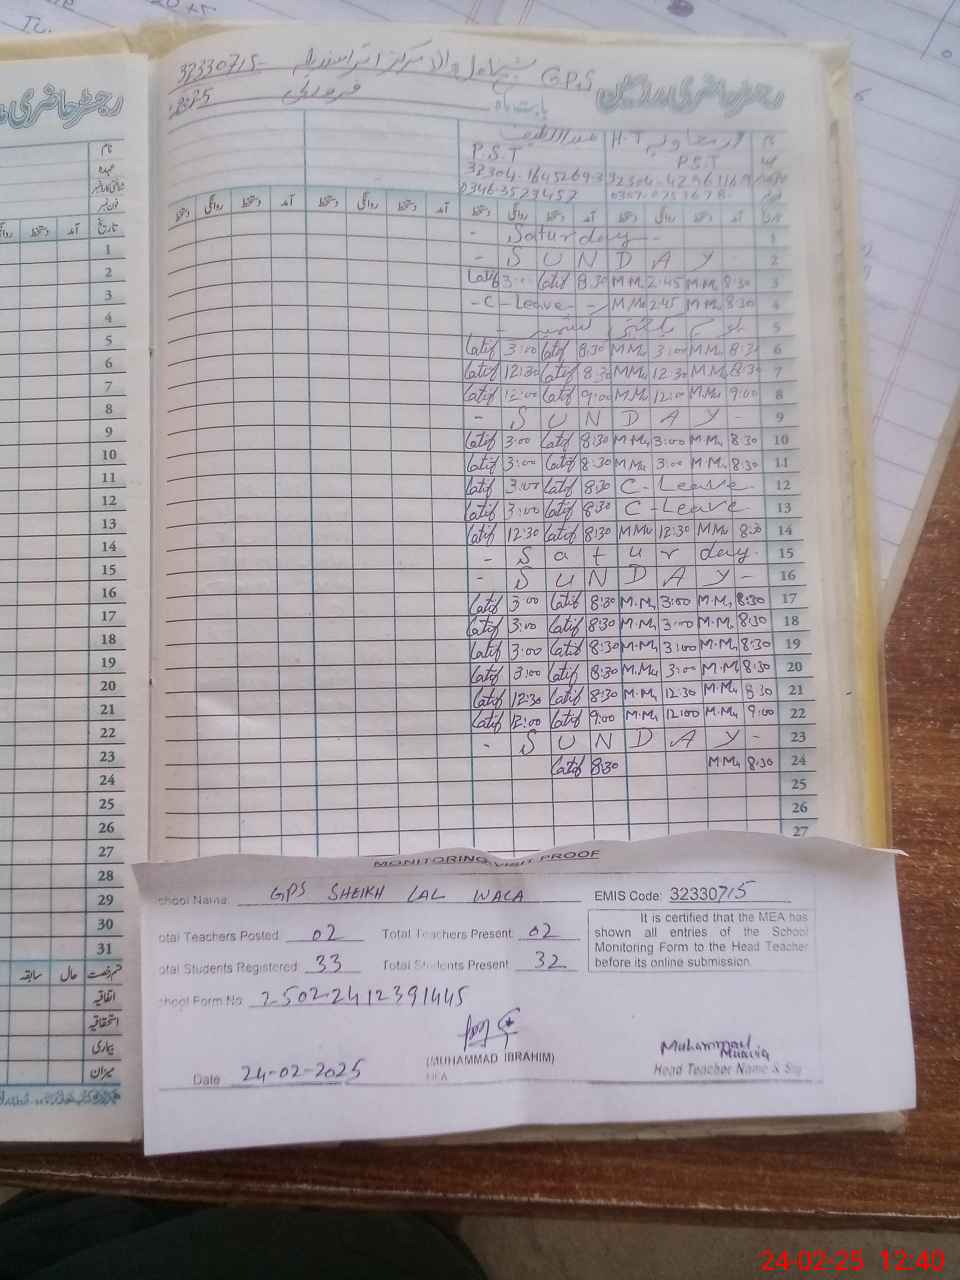 رجسٹر حاضری مدرسین GPS شیخ لعل والا مرکز 32330715
بابت ماہ فروری 2025
نام
عہدہ
H.T
P.S.T P.S.T
0346-3529457
تاریخ آمد دستخط روانگی دستخط آمد دستخط روانگی دستخط آمد دستخط روانگی دستخط آمد دستخط روانگی دستخط
- Saturday - 1
- S U N D A Y 2
Latif 3:00 Latif 8:30 M M 2:45 M M 8:30 3
- C - Leave - - M M 2:45 M M 8:30 4
یوم یکجہتی کشمیر 5
Latif 3:00 Latif 8:30 M M 3:00 M M 8:30 6
Latif 12:30 Latif 8:30 M M 12:30 M M 8:30 7
Latif 12:00 Latif 9:00 M M 12:00 M M 9:00 8
- S U N D A Y - 9
Latif 3:00 Latif 8:30 M M 3:00 M M 8:30 10
Latif 3:00 Latif 8:30 M M 3:00 M M 8:30 11
Latif 3:00 Latif 8:30 C - Leave 12
Latif 3:00 Latif 8:30 C - Leave 13
Latif 12:30 Latif 8:30 M M 12:30 M M 8:30 14
- S a t u r day. 15
- S U N D A Y - 16
Latif 3:00 Latif 8:30 M.M 3:00 M.M 8:30 17
Latif 3:00 Latif 8:30 M.M 3:00 M.M 8:30 18
Latif 3:00 Latif 8:30 M.M 3:00 M.M 8:30 19
Latif 3:00 Latif 8:30 M.M 3:00 M.M 8:30 20
Latif 12:30 Latif 8:30 M.M 12:30 M.M 8:30 21
Latif 12:00 Latif 9:00 M.M 12:00 M.M 9:00 22
- S U N D A Y - 23
Latif 8:30 M M 8:30 24
25
26
27
رجسٹر حاضری
نام
عہدہ
تاریخ آمد دستخط روانگی
1
2
3
4
5
6
7
8
9
10
11
12
13
14
15
16
17
18
19
20
21
22
23
24
25
26
27
28
29
30
31
قسم رخصت حال سابقہ
اتفاقیہ
استحقاقیہ
بیماری
میزان
MONITORING VISIT PROOF
chool Name GPS SHEIKH LAL WALA EMIS Code: 32330715
otal Teachers Posted 02 Total Teachers Present 02
otal Students Registered 33 Total Students Present 32
It is certified that the MEA has
shown all entries of the School
Monitoring Form to the Head Teacher
before its online submission.
chool Form No 25022412391445
(MUHAMMAD IBRAHIM)
MEA
Muhammad
Muavia
Head Teacher Name & Sig
Date 24-02-2025
24-02-25 12:40